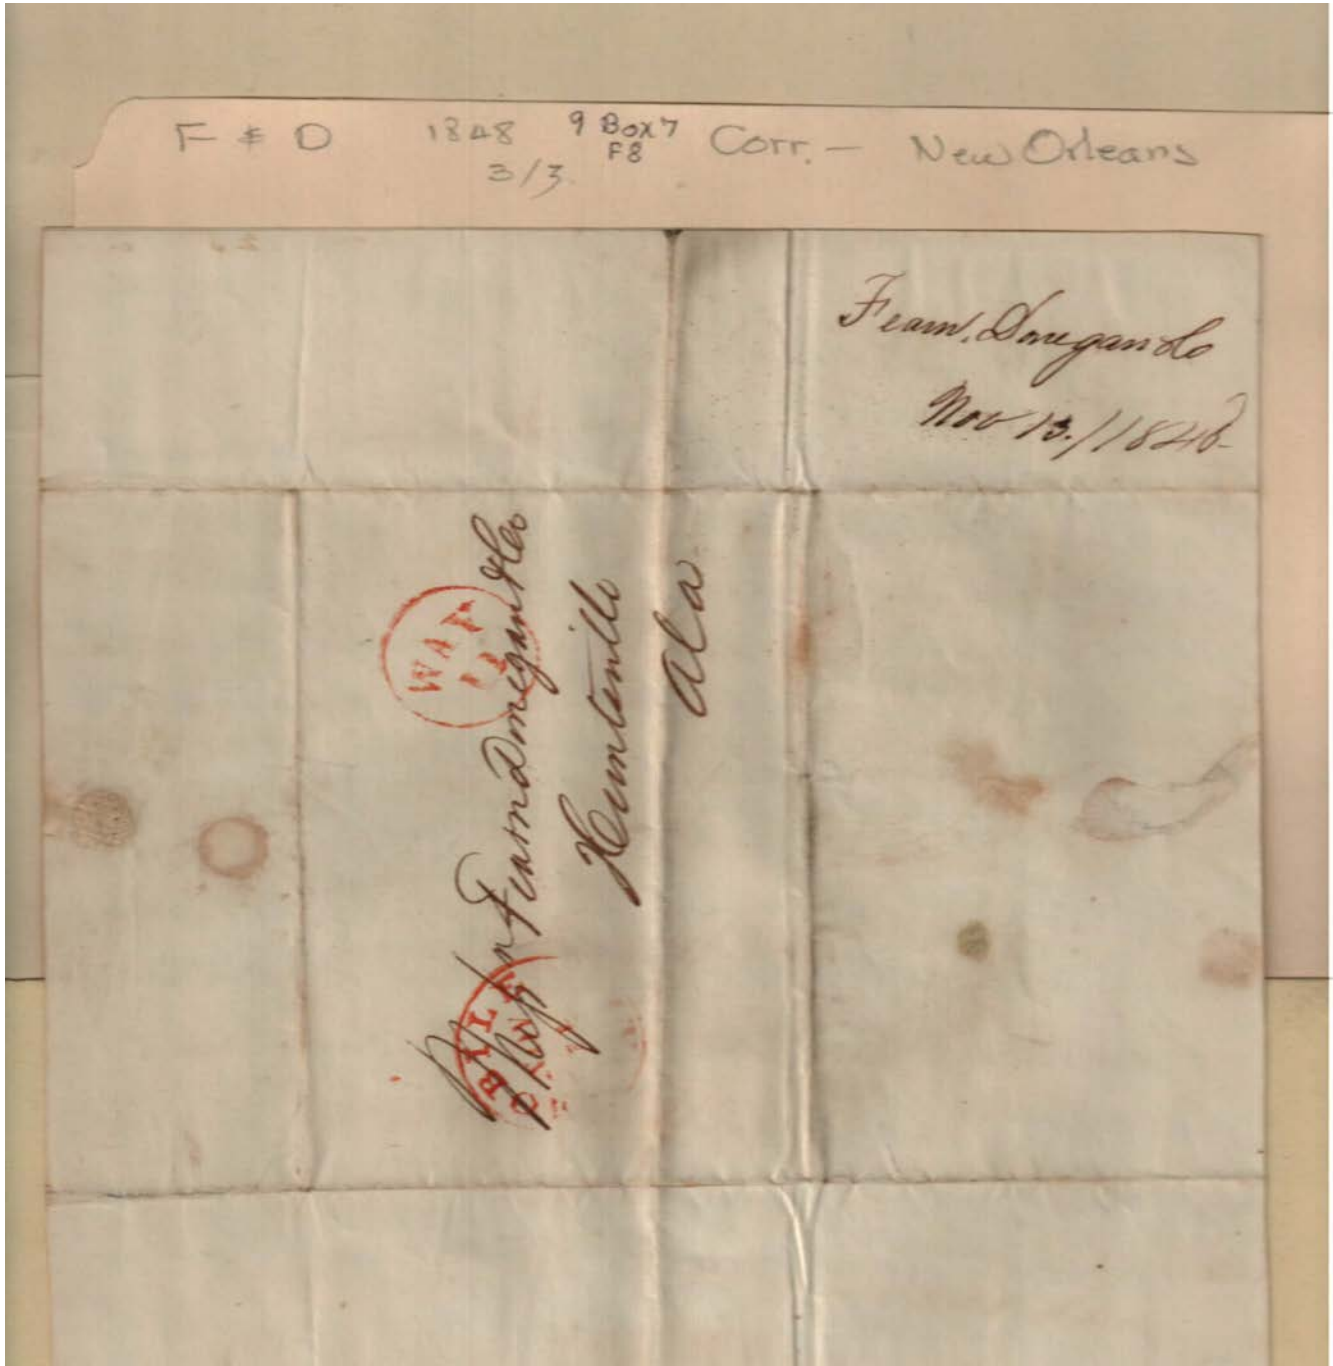 F & D 1848 9 Box 7 Corr. — New Orleans
3/3. F8
Fearn, Donegan & Co
Nov 13. / 1848
Messrs Fearn Donegan & Co
Huntsville
Ala
WAY